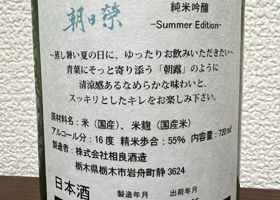 純米吟醸
朝日榮
-Summer Edition-
~蒸し暑い夏の日に、ゆったりお飲みいただきたい~
青葉にそっと寄り添う「朝露」のように
清涼感あるなめらかな味わいと、
スッキリとしたキレをお楽しみ下さい。
原材料名：米（国産）、米麹（国産米）
アルコール分：16度 精米歩合：55% 内容量：720ml
製造者：株式会社相良酒造
栃木県栃木市岩舟町静3624
日本酒
製造年月 出荷年月